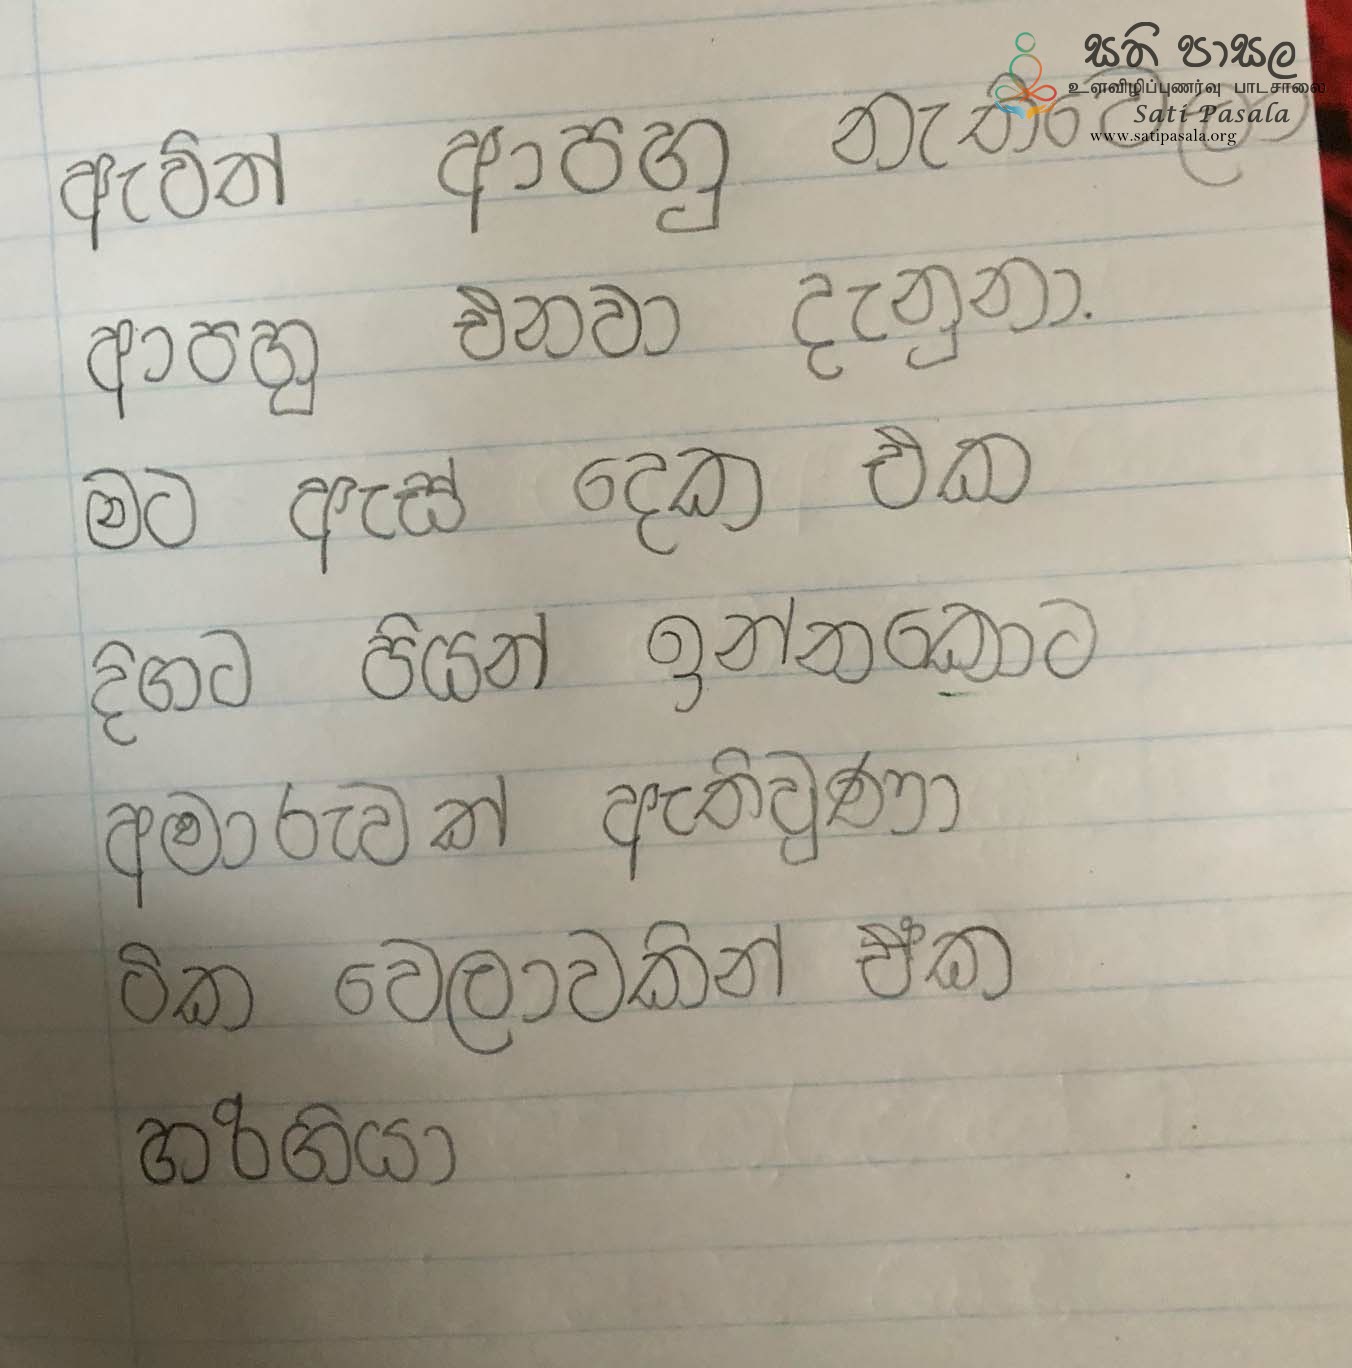 සති පාසල
உளவிழிப்புணர்வு பாடசாலை
Sati Pasala
www.satipasala.org
ඇවිත් ආපහු නැතිවෙලා
ආපහු එනවා දැනුනා.
මට ඇස් දෙක එක
දිගට පියන් ඉන්නකොට
අමාරුවක් ඇතිවුණා
ටික වෙලාවකින් ඒක
හරිගියා